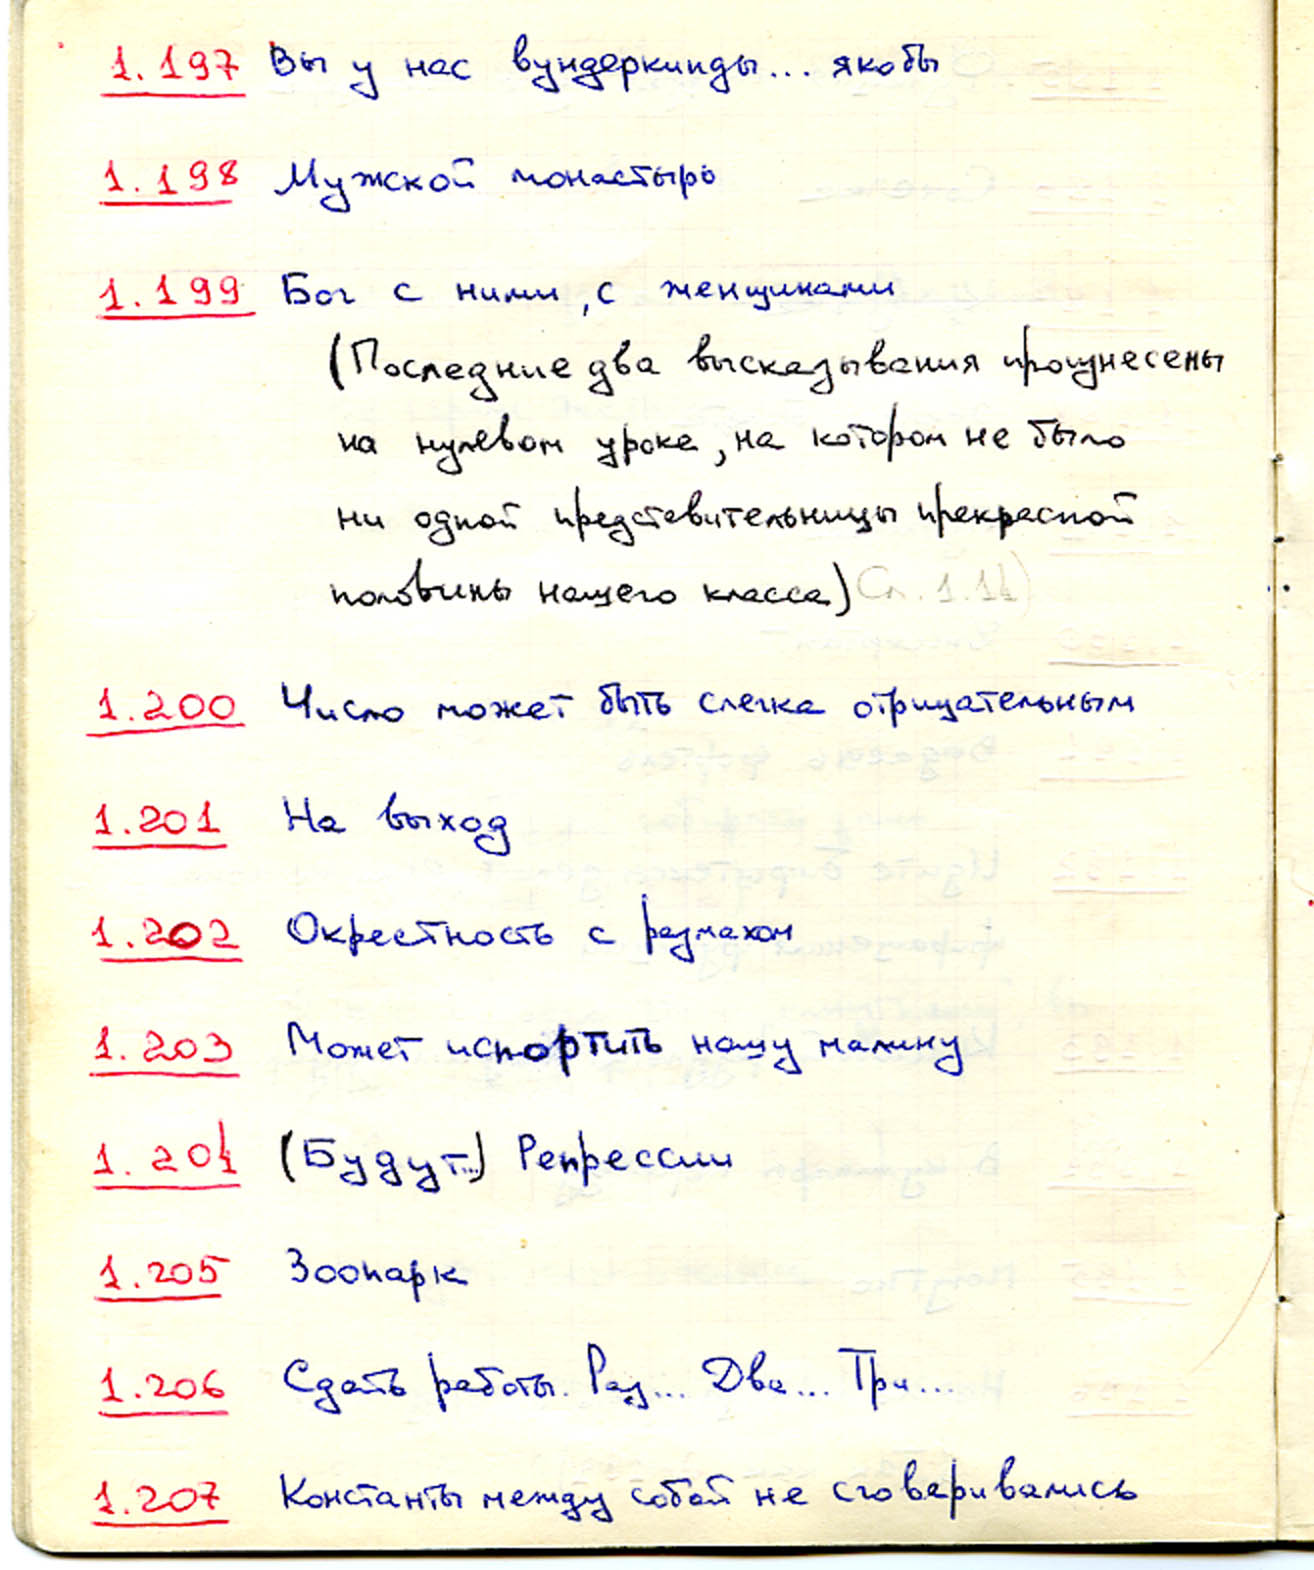 1.197 Вы у нас вундеркинды... якобы
1.198 Мужской монастырь
1.199 Бог с ними, с женщинами
(Последние два высказывания произнесены
на нулевом уроке, на котором не было
ни одной представительницы прекрасной
половины нашего класса) См. 1.14)
1.200 Число может быть слегка отрицательным
1.201 На выход
1.202 Окрестность с размахом
1.203 Может испортить нашу малину
1.204 (Будут...) Репрессии
1.205 Зоопарк
1.206 Сдать работы. Раз... Два... Три...
1.207 Константы между собой не сговаривались